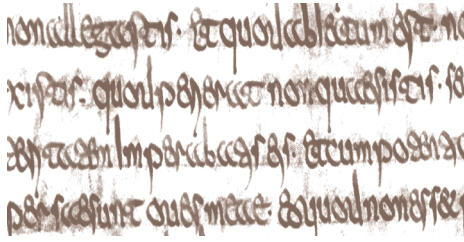 non alligastis. et quod abiectum est. no
xistis. quod perierat non quaesistis. se
imperabatis eis. et cum potentia
persae sunt oues meae. eo quod non esset